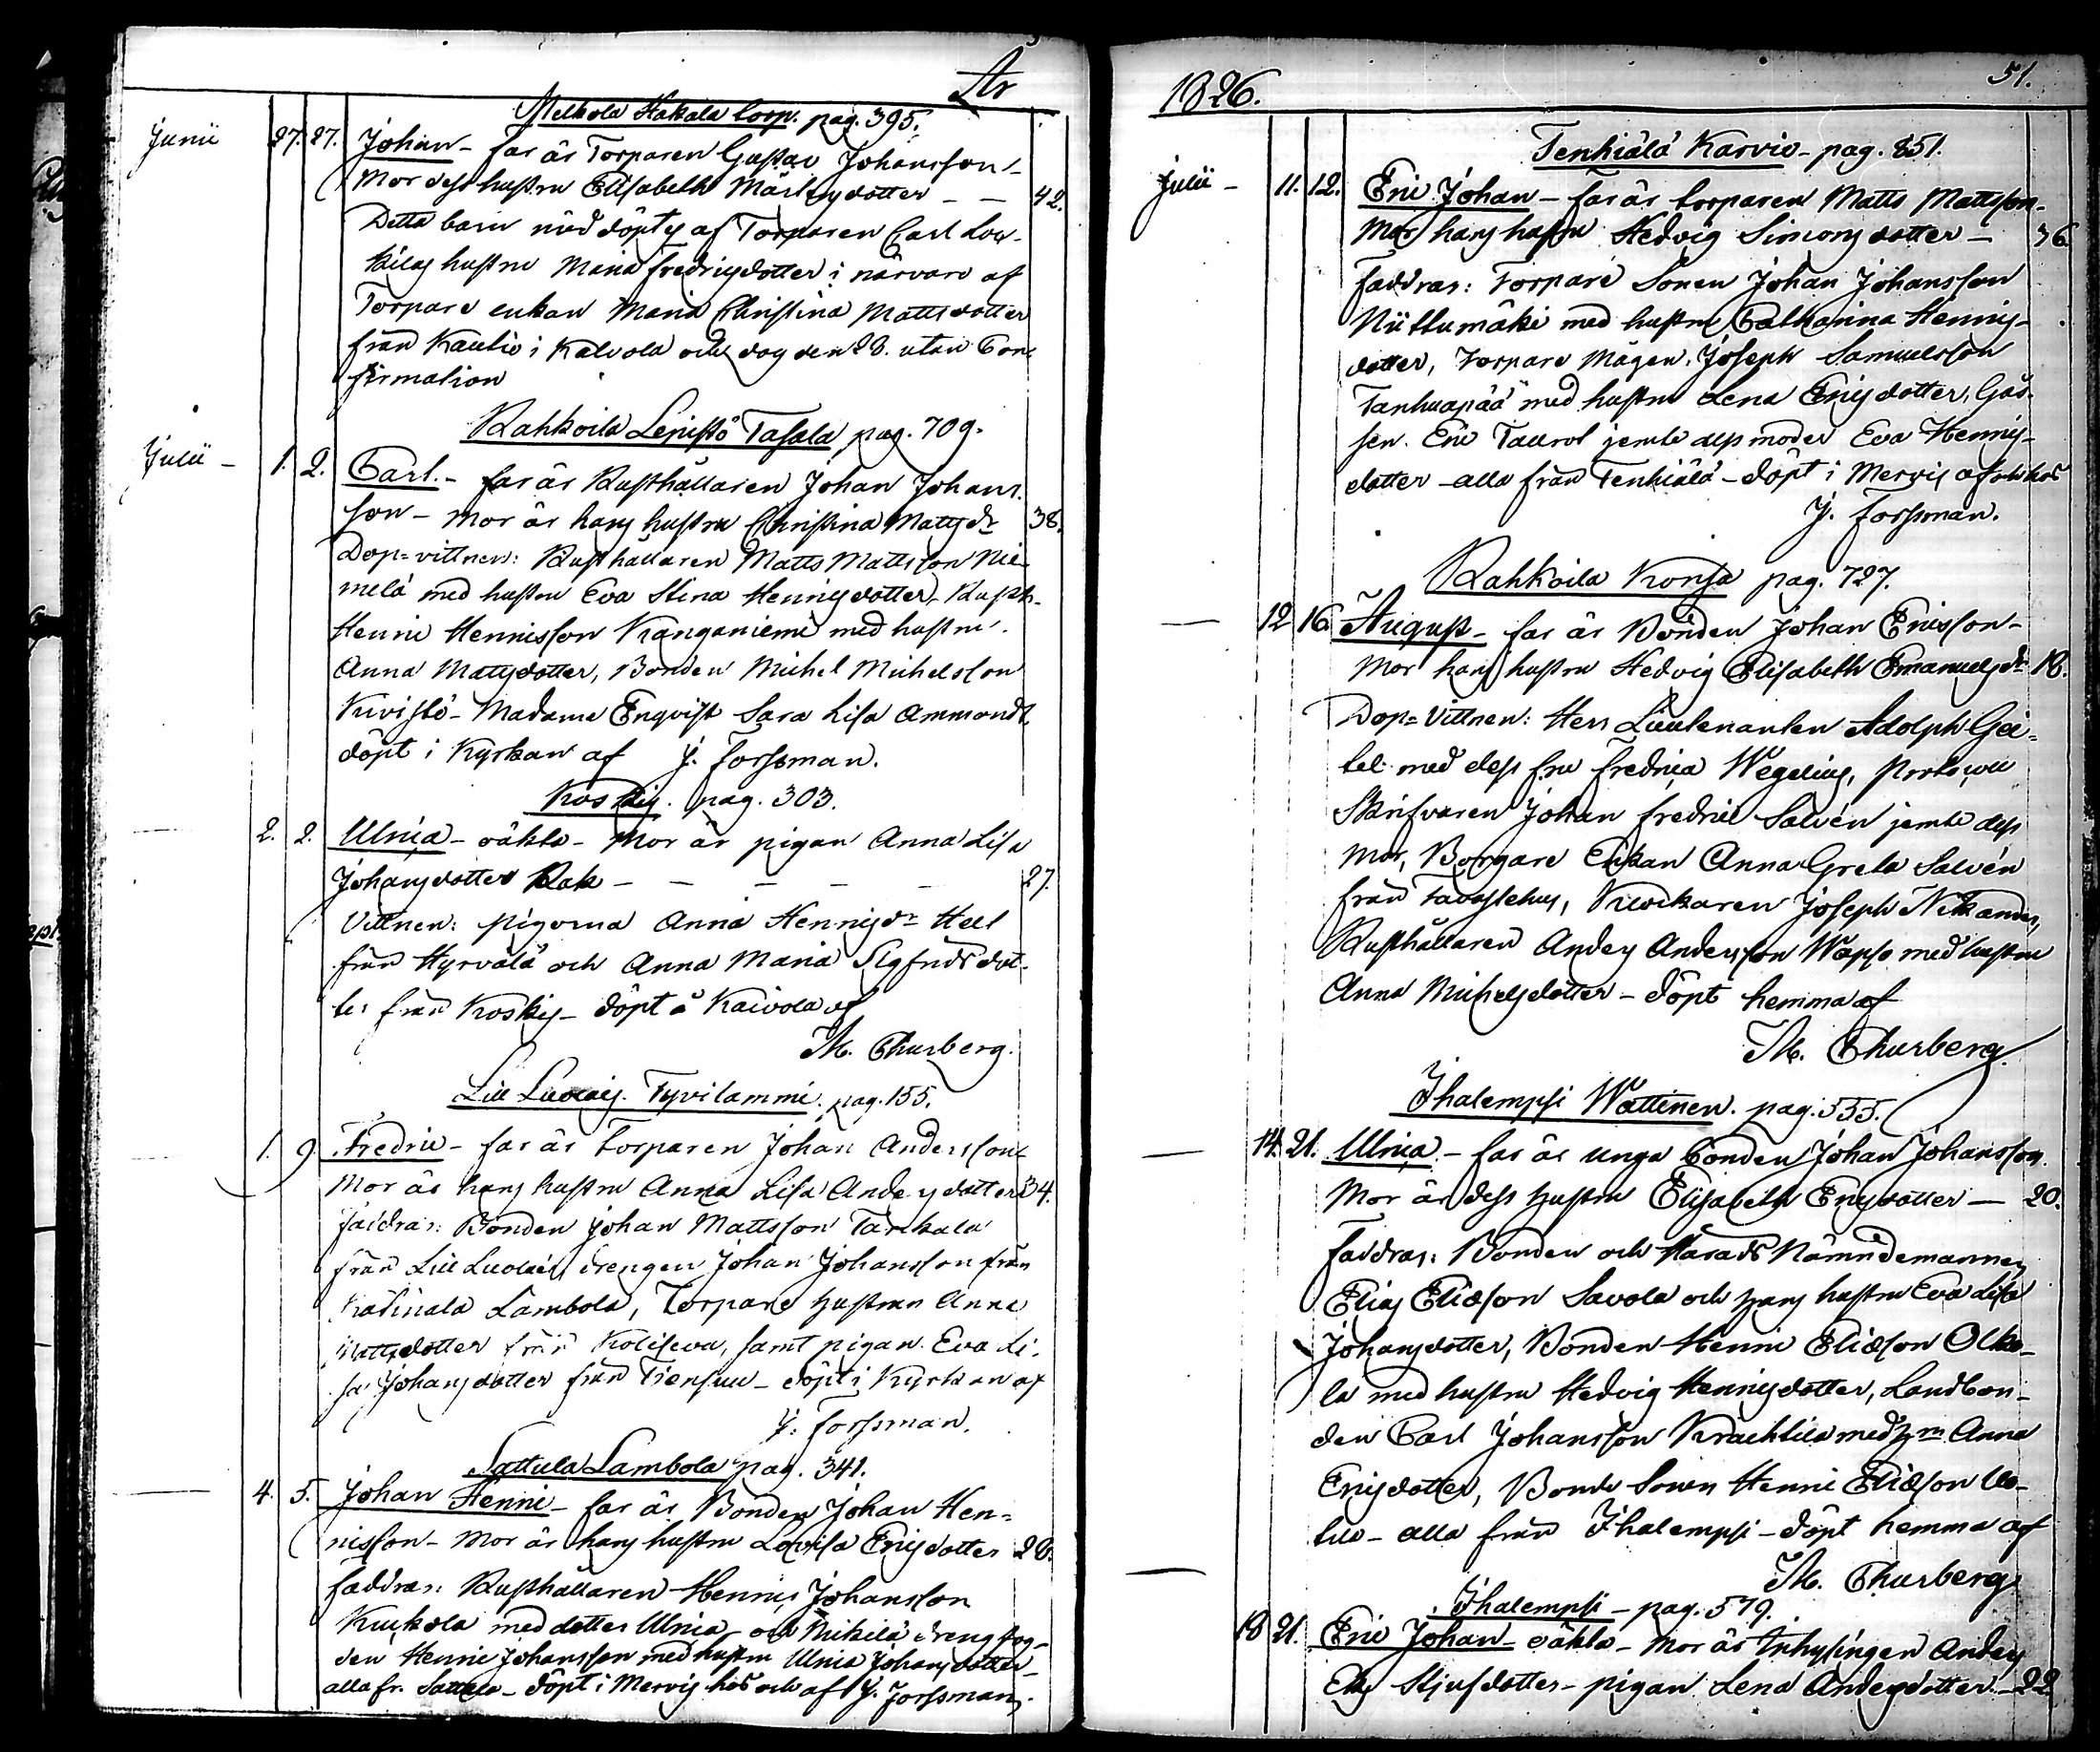 År
Melkola Hakala torp. pag. 395.
Junii 27. 27. Johan - far är Torparen Gustav Johansson -
Mor dess hustru Elisabeth Mårtensdotter - - 42.
Detta barn nöddöptes af Torparen Carl
hustru Maria Fredricsdotter i närvaro af
Torpare enkan Maria Christina Mattsdotter
från Kautio i Kalvola och dog den 28. utan Con-
firmation
Rahkoila Lepistö Tasala pag. 709.
Julii - 1. 2. Carl. - far är Rusthållaren Johan Johans-
son - Mor är hans hustru Christina Mattsdr 38.
Dop-vittnen: Rusthållaren Matts Mattsson Nie-
melä med hustru Eva Stina Henricsdotter, Rusth.
Henric Henricsson Kanganiemi med hustru
Anna Mattsdotter, Bonden Michel Michelsson
Kivistö - Madame Enqvist Sara Lisa Ammondt.
döpt i Kyrkan af J. Forssman.
Koskis. pag. 303.
2. 2. Ulrica - oäkta - Mor är pigan Anna Lisa
Johansdotter Rak - - - - - 27.
Vittnen: pigorna Anna Henricsdr Hell
från Hyrvälä och Anna Maria Sigfridsdot-
ter från Koskis - döpt å Kaivola af
M. Churberg.
Lill Luolais. Tyvilammi. pag. 155.
1. 9. Fredric - far är torparen Johan Andersson
Mor är hans hustru Anna Lisa Andersdotter 34.
faddrar: Bonden Johan Mattsson Tarkala
från Lill Luolais, drengen Johan Johansson från
Katinala Lambola, Torpare hustrun Anna
Mattsdotter från samt pigan Eva Li-
sa Johansdotter från Tiensuu - döpt i Kyrkan af
J. Forssman.
Sattula Lambola pag. 341.
4. 5. Johan Henric - far är Bonden Johan Hen-
ricsson - Mor är hans hustru Lovisa Ericsdotter 28.
faddrar: Rusthållaren Henric Johansson
Kuckola med dotter Ulrica och Mikilä drengfog-
den Henric Johansson med hustru Ulrica Johansdotter -
alla fr. Sattula - döpt i Mervis hos och af J. Forssman.
1826. 51.
Tenhiälä Karvio - pag. 851.
Julii - 11. 12. Eric Johan - far är torparen Matts Mattsson -
Mor hans hustru Hedvig Simonsdotter - 36.
faddrar: Torpare Sonen Johan Johansson
Niittumäki med hustru Catharina Henrics-
dotter, Torpare Mågen Joseph Samuelsson
Tanhuapää med hustru Lena Ericsdotter,
Eric jemte dess moder Eva Henrics-
dotter - alla från Tenhiälä - döpt i Mervis af och hos
J. Forssman.
Rahkoila Konsa pag. 727.
12 16 August - far är Bonden Johan Ericsson -
Mor hans hustru Hedvig Elisabeth Emanuelsdr 18.
Dop-Vittnen: Herr Lieutenanten Adolph Gei-
tel med dess fru Fredrica Wegelius, Protocoll
Skrifvaren Johan Fredric Salvén jemte dess
Mor, Borgare Enkan Anna Greta Salvén
från Tavastehus, Klockaren Joseph Nikander,
Rusthållaren Anders Andersson Wapso med hustru
Anna Michelsdotter - döpt hemma af
M. Churberg.
Ihalempsi Wattinen. pag. 555.
14. 21. Ulrica - far är unga bonden Johan Johansson
Mor är dess hustru Elisabeth Ericsdotter - 20.
faddrar: Bonden och Härads Nämndemannen
Elias Eliasson Savola och hans hustru Eva Lisa
Johansdotter, Bonden Henric Eliasson Olko-
la med hustru Hedvig Henricsdotter, Landbon-
den Carl Johansson med hru Anna
Ericsdotter, Bonde Sonen Henric Eliasson
- alla från Ihalempsi - döpt hemma af
M. Churberg
Ihalempsi - pag. 579.
18 21. Eric Johan - oäkta - Mor är Inhysingen Anders
Stjufdotter - pigan Lena Andersdotter - 22